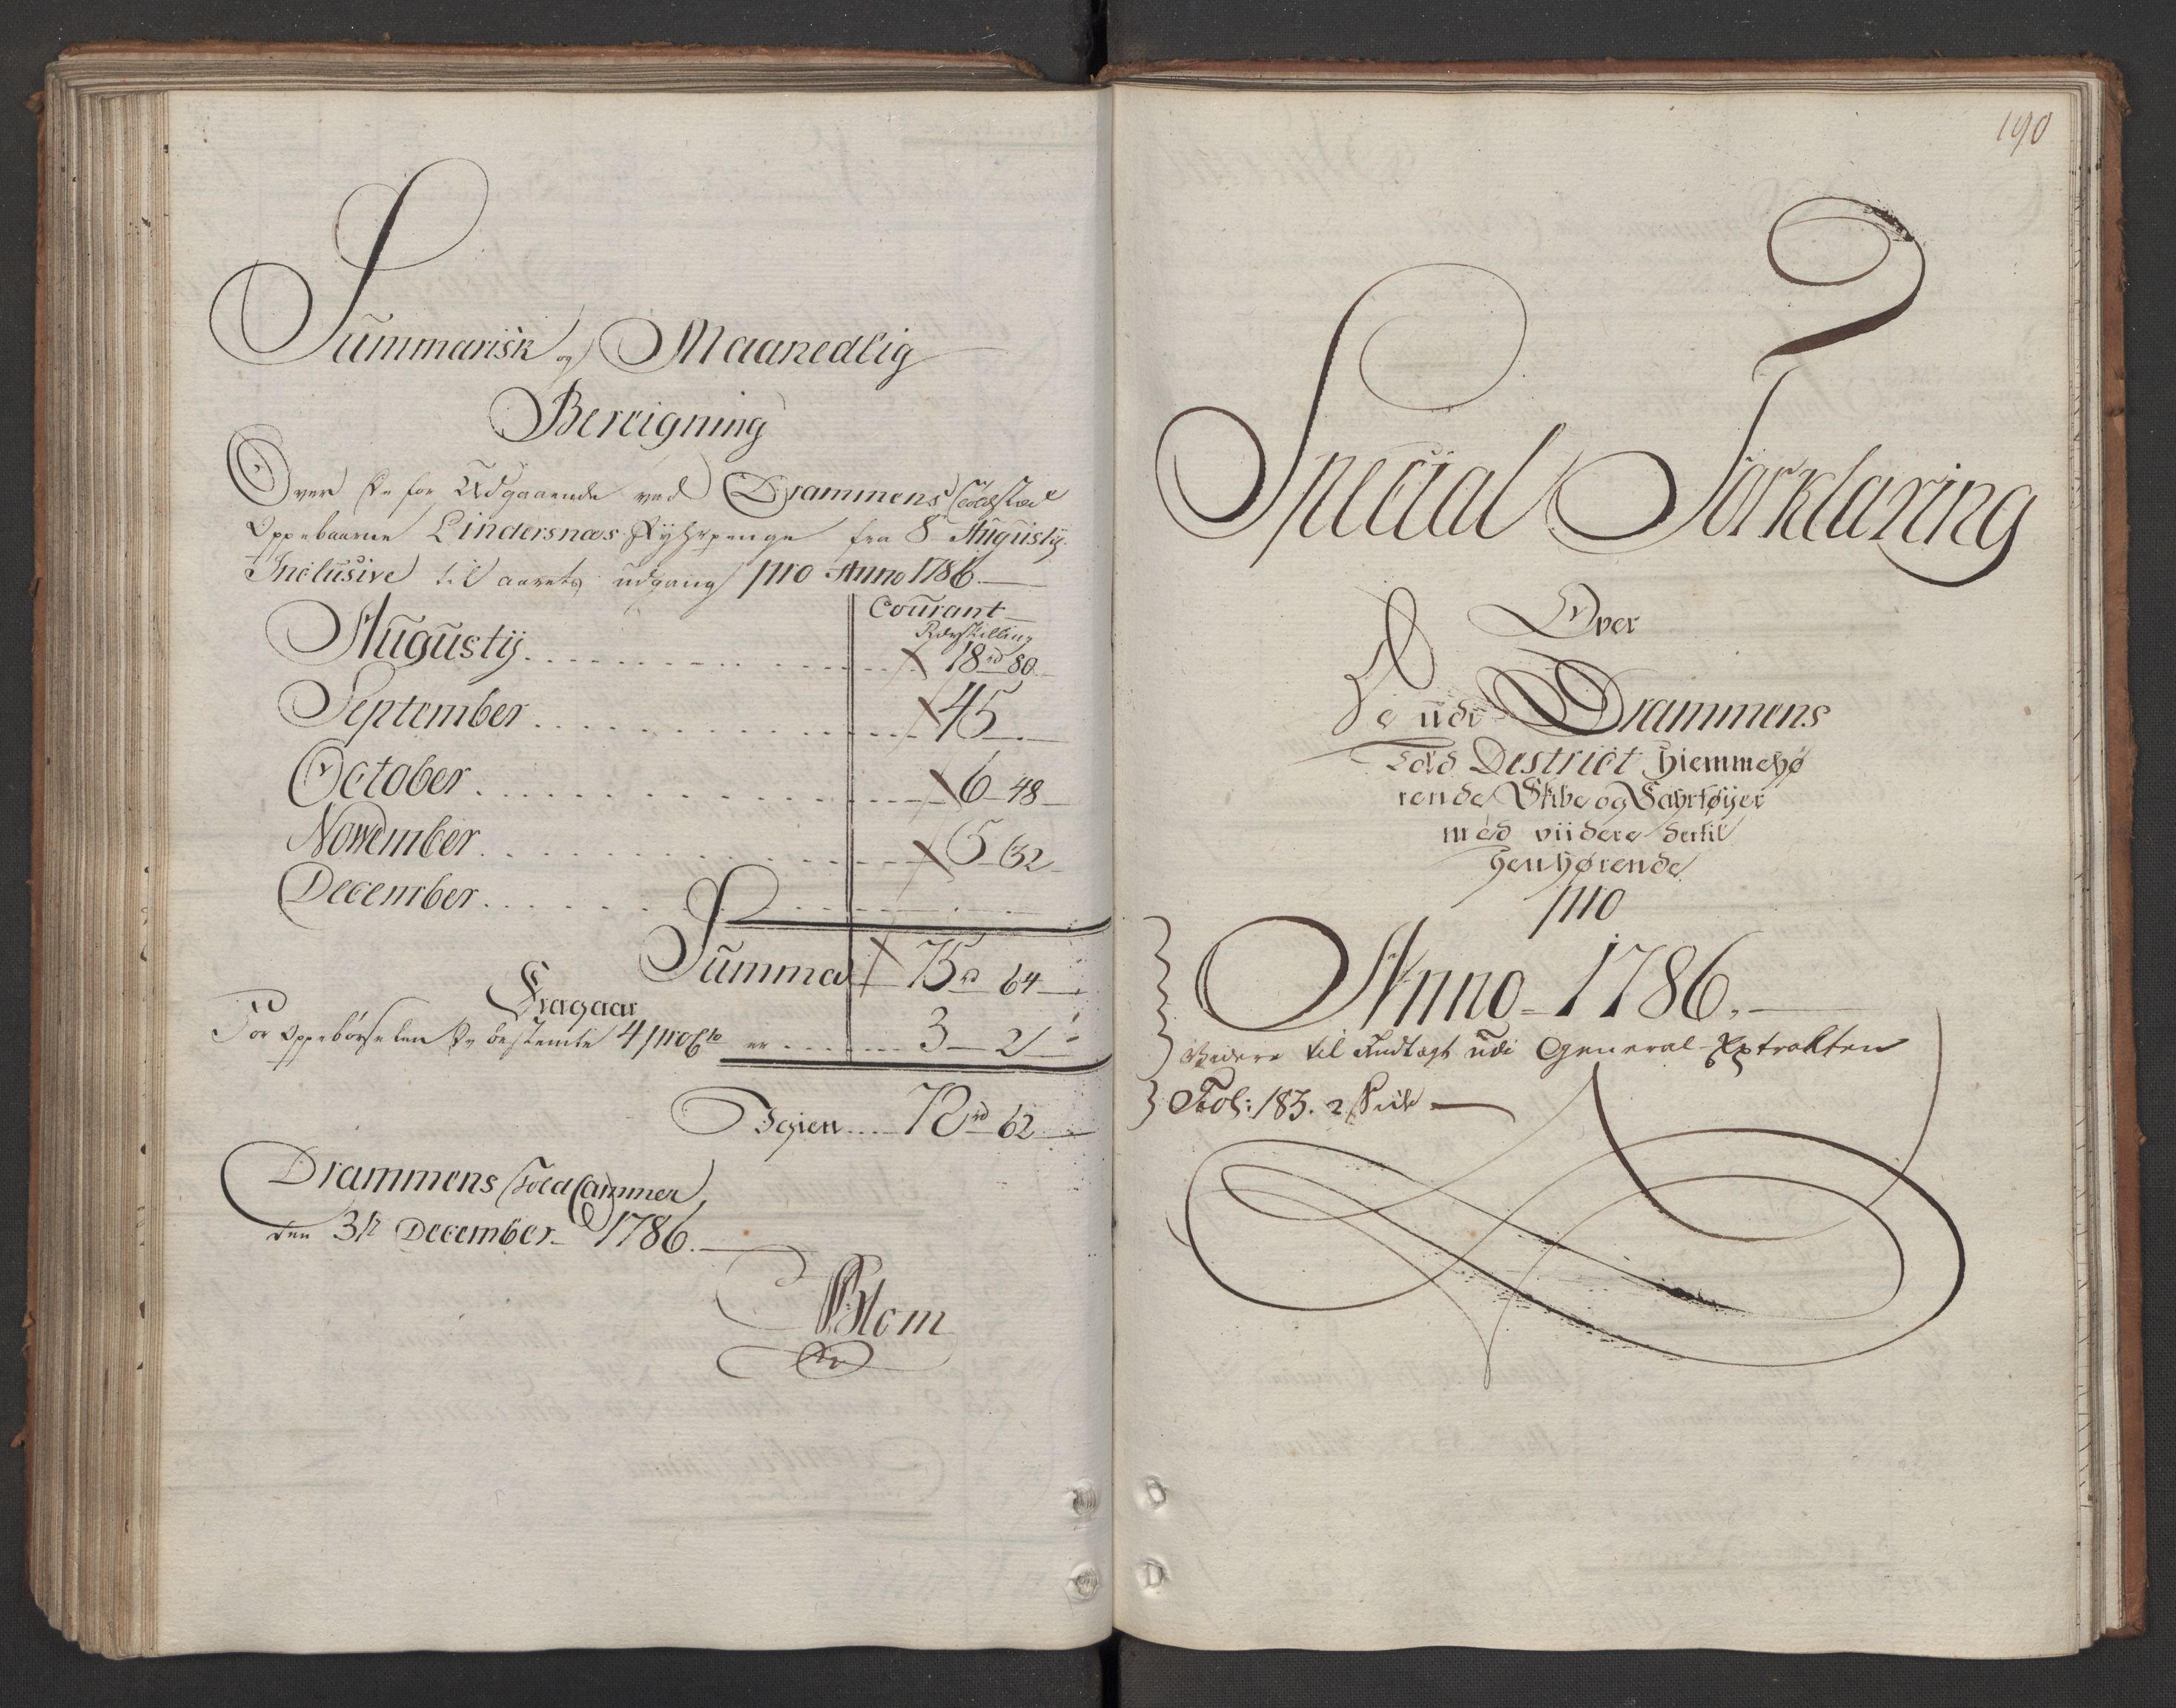 Summarisk og Maanedlig
Bereigning
Over de for Udgaaende ved Drammens Toldsted
Oppebaarne Lindersnæs Fyhrpenge fra 8 Augustij
Inclusive til aarets udgang pro Anno 1786.
Courant
Rdr skilling
Augustij 18 rd 80
September 45
October 6 48
November 5 32
December
Summa 75 rd 64
Fragaar
For Oppebørselen de bestemte 4 pro Cto er 3 2
Igien 72 rd 62
Drammens Told Cammer
den 31 December 1786.
Blom
190
Special Forklaring
Over
De udi Drammens
Told District hiemmehø
rende Skibe og Fahrtøyer
med viidere dertil
henhørende
pro
Anno 1786.
Videre til Indtægt udi General Extrakten
Fol: 183. 2 Side